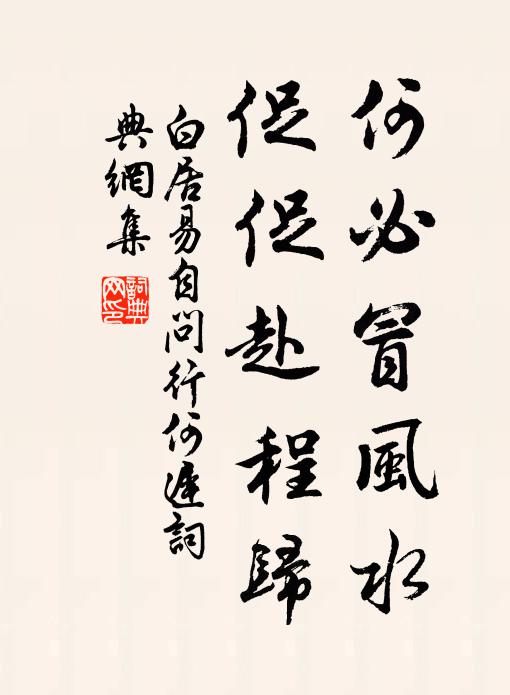 何必冒風水
促促赴程歸
白居易自問行何遲詞
典網集
詞典
网印